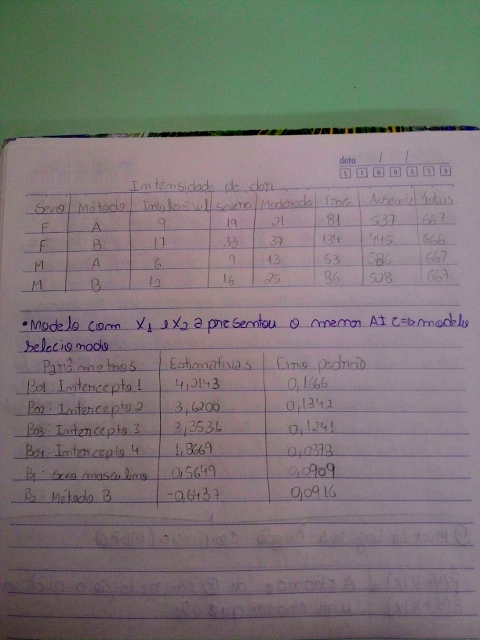 data / /
D S T Q Q S S
Intensidade de dor
Sexo Método Intolerável Severo Moderado Fraca Ausente Totais
F A 9 19 21 81 537 667
F B 17 33 37 134 445 666
M A 6 9 13 53 586 667
M B 12 16 25 86 528 667
• Modelo com X1 e X2 apresentou o menor AIC => modelo
selecionado
Parâmetros Estimativas Erro padrão
B01: Intercepto 1 4,2143 0,1666
B02: Intercepto 2 3,6200 0,1342
B03: Intercepto 3 3,3536 0,1241
B04: Intercepto 4 1,8669 0,0973
B1: Sexo masculino 0,5649 0,0909
B2: Método B -0,6437 0,0916